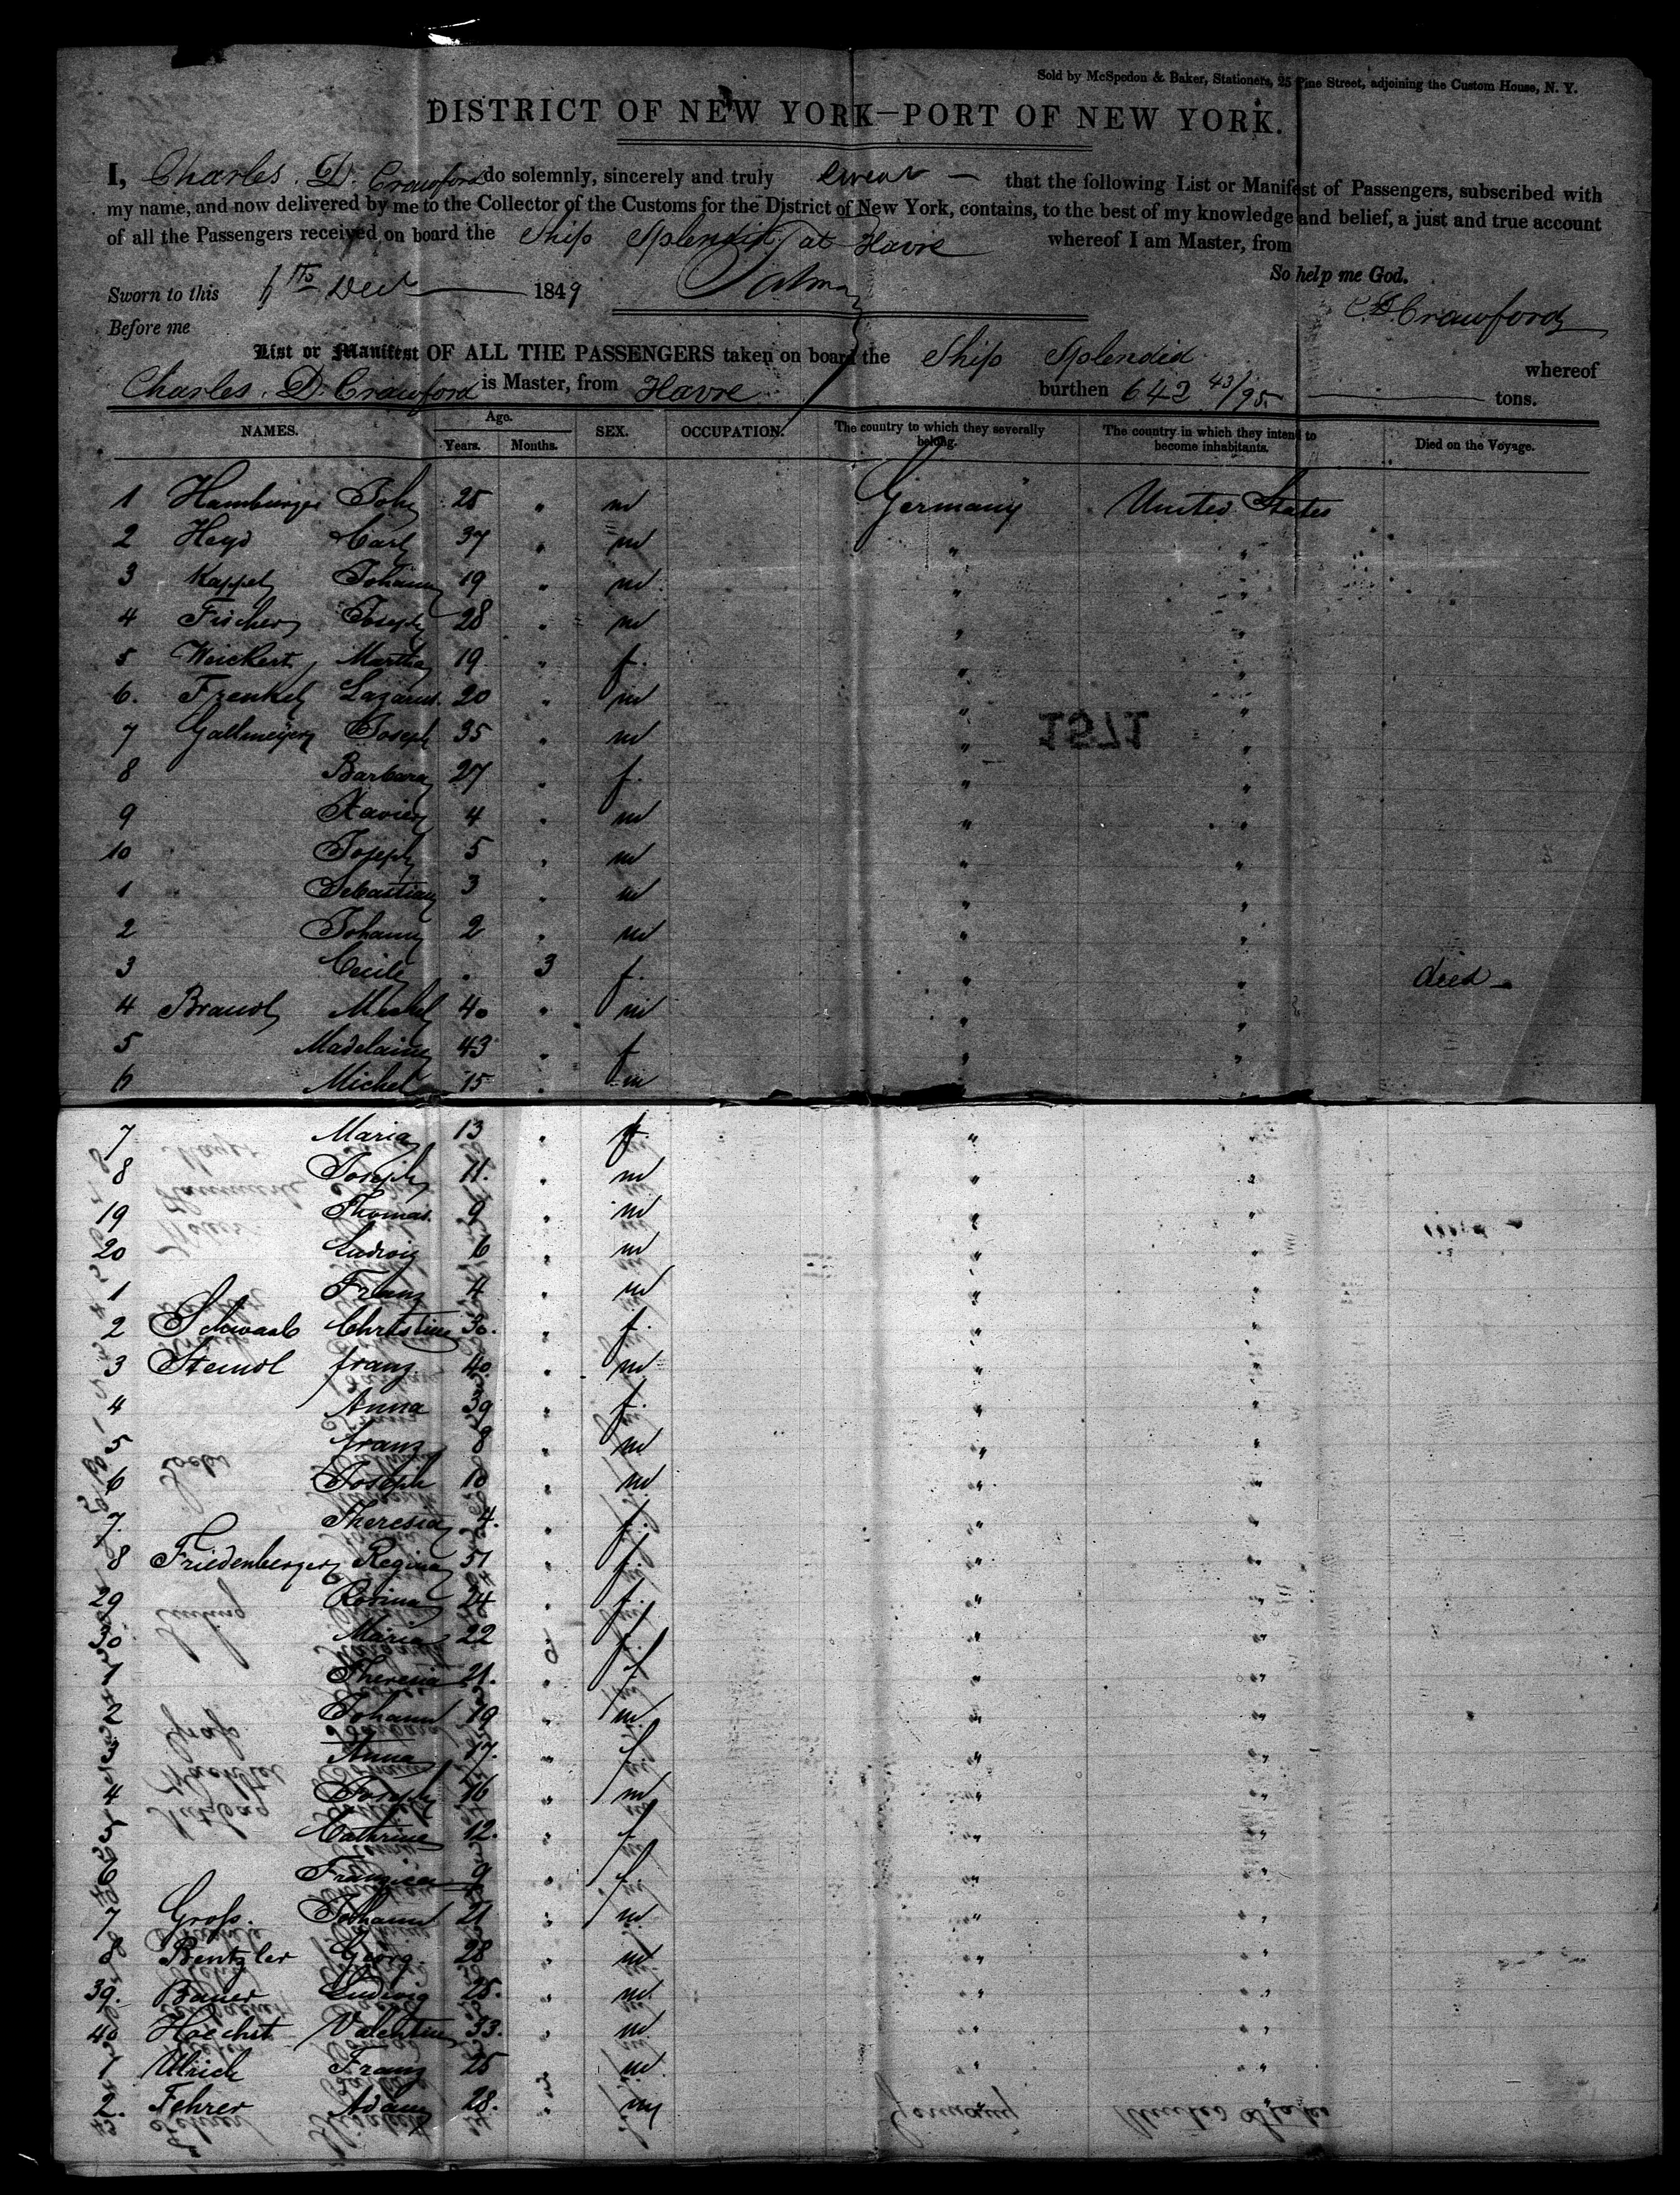 Sold by McSpedon & Baker, Stationers, 25 Pine Street, adjoining the Custom House, N. Y.
DISTRICT OF NEW YORK—PORT OF NEW YORK.
I, Charles. D. Crawford do solemnly, sincerely and truly swear — that the following List or Manifest of Passengers, subscribed with
my name, and now delivered by me to the Collector of the Customs for the District of New York, contains, to the best of my knowledge and belief, a just and true account
of all the Passengers received on board the Ship Splendid at Havre whereof I am Master, from
So help me God.
Sworn to this Dec 1849
C D Crawford
Before me
List or Manifest OF ALL THE PASSENGERS taken on board the Ship Splendid whereof
Charles. D. Crawford is Master, from Havre burthen 642 43/95 tons.
NAMES. Age. Years. Months. SEX. OCCUPATION. The country to which they severally belong. The country in which they intend to become inhabitants. Died on the Voyage.
1 Hamburger John 25 " m Germany United States
2 Heyd Carl 37 " m " "
3 Kappel Johann 19 " m " "
4 Fischer Joseph 28 " m " "
5 Weickert Martha 19 " f. " "
6. Frenkel Lazarus. 20 " m " "
7 Gallmeyer Joseph 35 " m " "
1571
8 Barbara 27 " f. " "
9 Xavier 4 " m " "
10 Joseph 5 " m " "
1 Sebastian 3 " m " "
2 Johann 2 " m " "
3 Cecile . 3 f. " " died
4 Brandl Michel 40 " m " "
5 Madelaine 43 " f " "
6 Michel 15 " m
7 Maria 13 " f. " "
8 Joseph 11. " m " "
19 Thomas. 9 " m " "
20 Ludwig 6 " m " "
1 Franz 4 " m " "
2 Schwaab Christine 30. " f. " "
3 Steindl franz 40 " m " "
4 Anna 39 " f. " "
5 franz 8 " m " "
6 Joseph 10 " m " "
7. Theresia 4. " f. " "
8 Friedenberger Regina 51 " f. " "
29 Rosina 24 " f. " "
30 Maria 22 f. " "
1 Theresia 21. " f " "
2 Johann 19 " m " "
3 Anna 17. " f. " "
4 Joseph 16 " m " "
5 Cathrine 12. " f " "
6 Francisca 9 " f " "
7 Groß. Johann 21 " m " "
8 Bentzler Georg. 28 " m " "
39. Bauer Ludwig 25. " m " "
40 Hoechst Valentin 33. " m " "
1 Ulrich Franz 25 " m " "
2. Fehrer Adam 28. " m